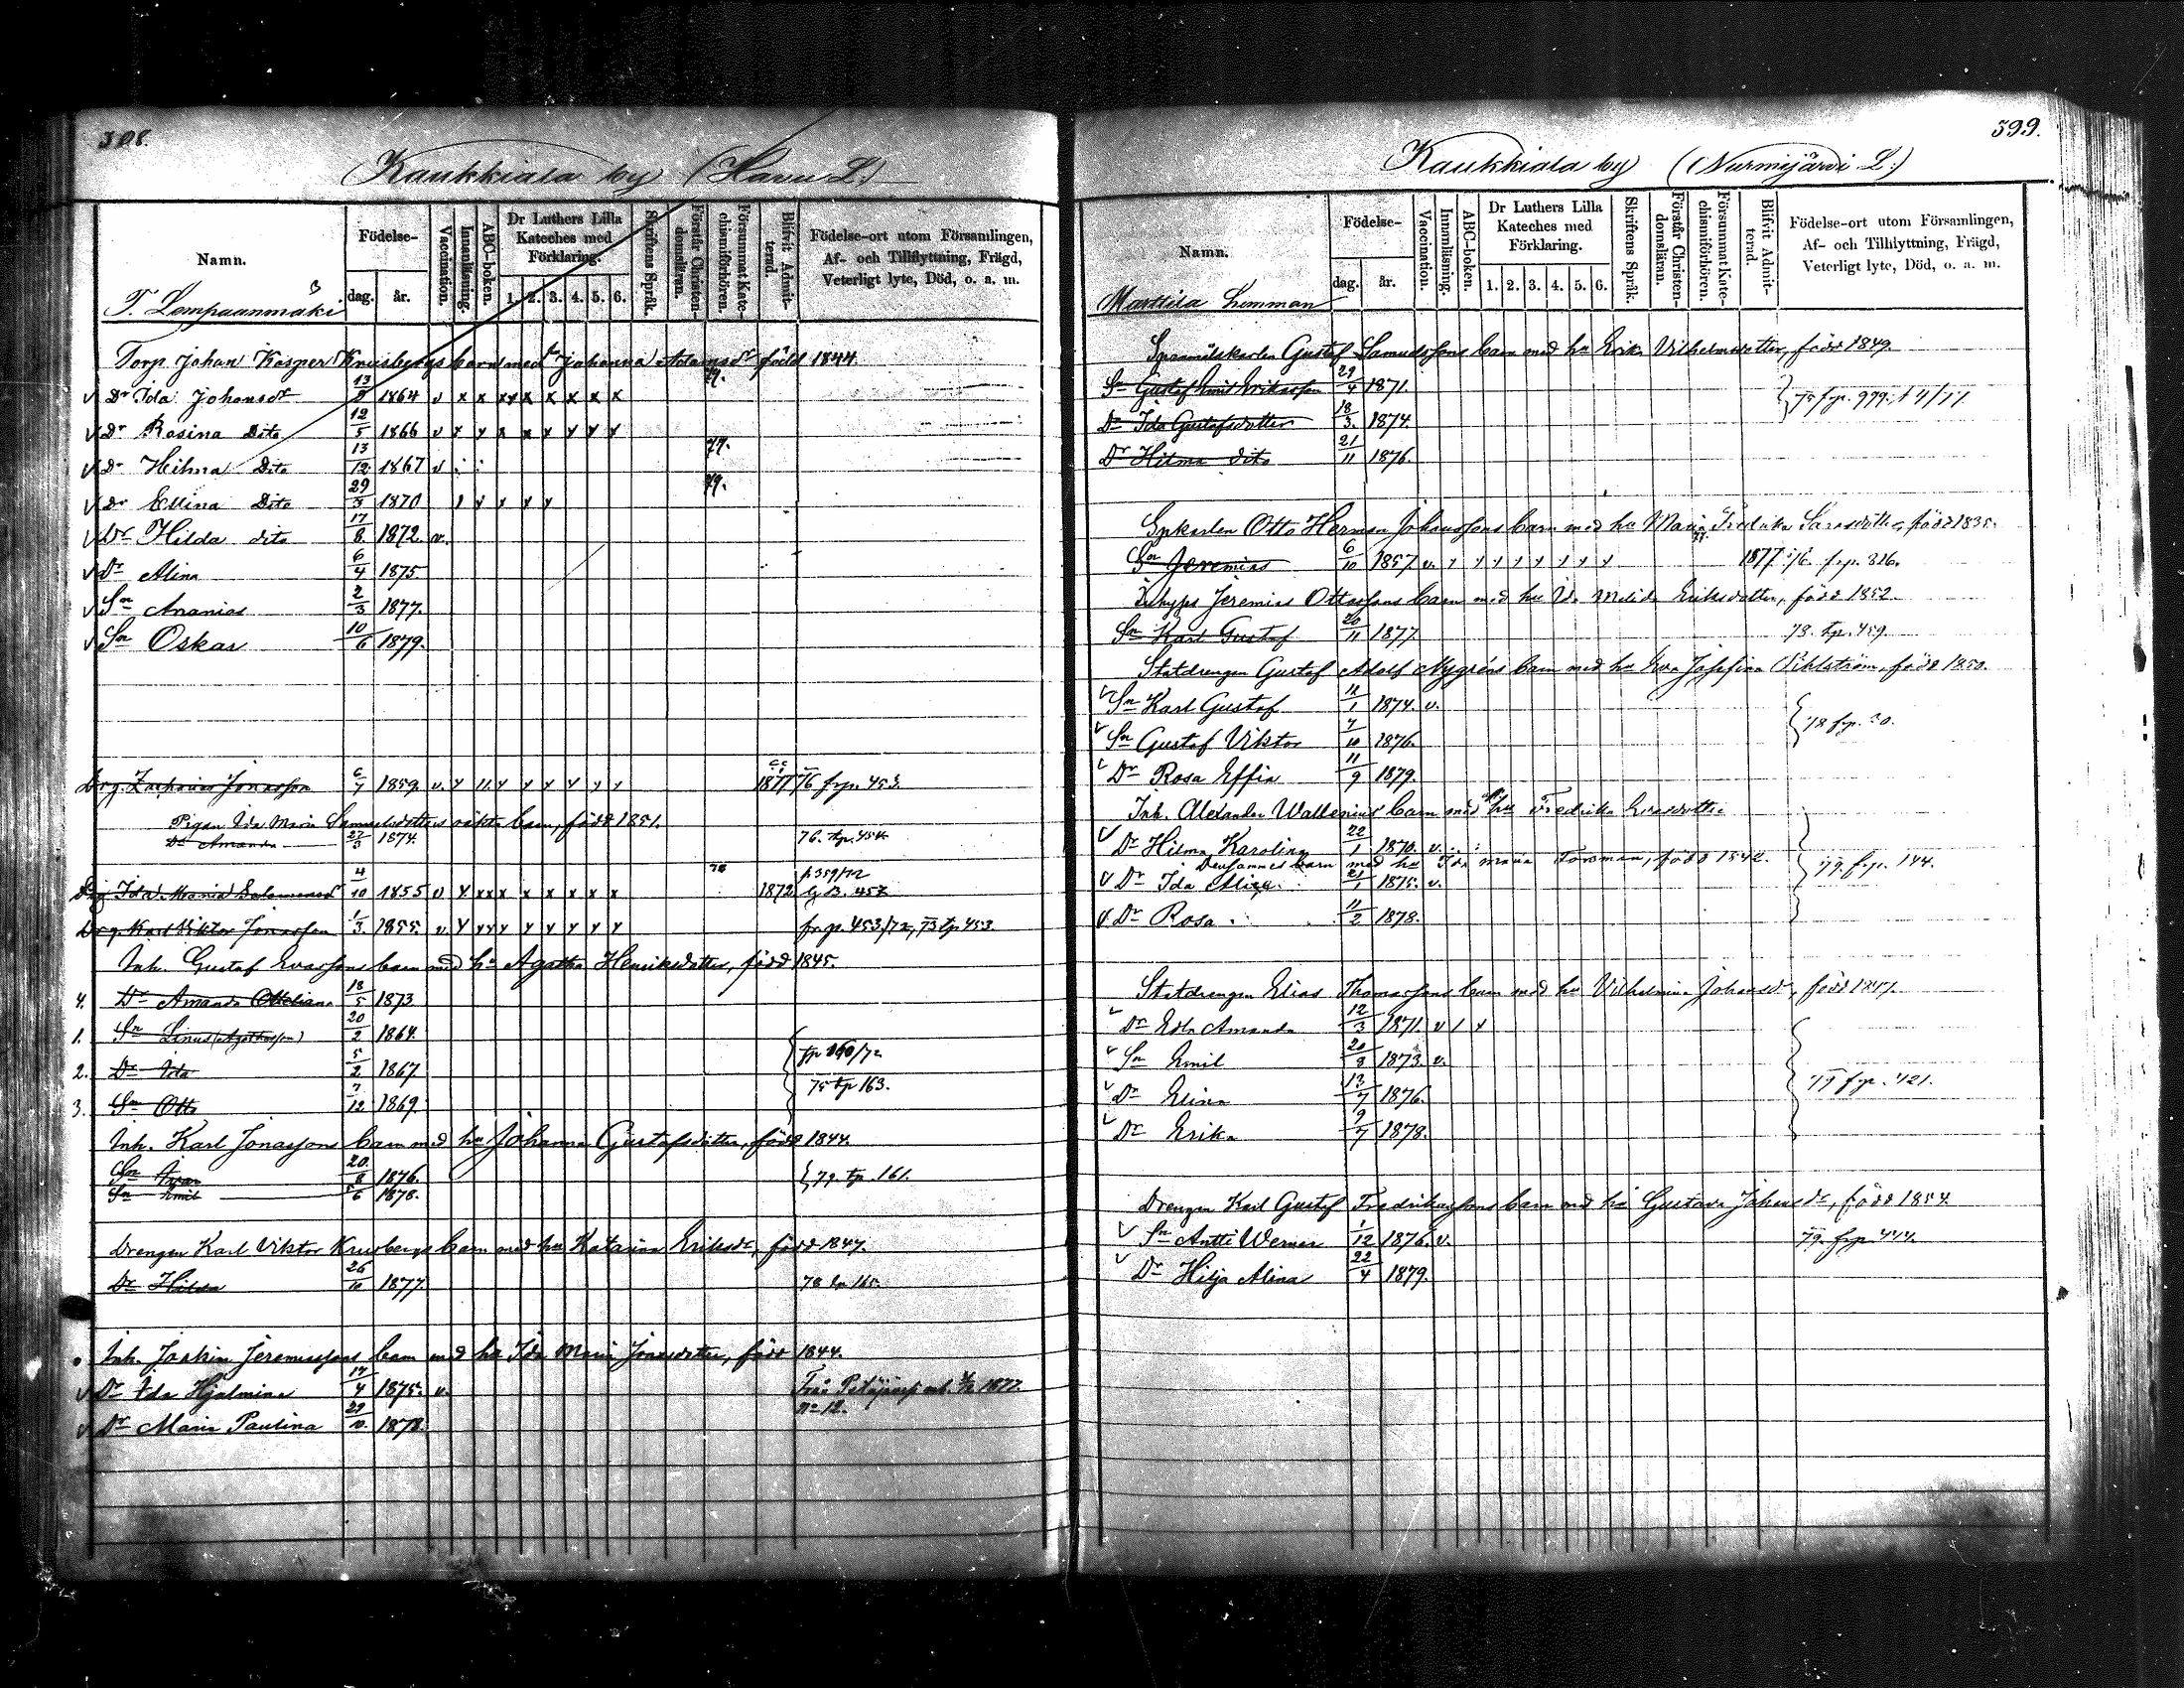 398.
Kaukkiala by (Havu L.)
Namn.
Födelse-
dag.
år.
Vaccination.
Innanläsning.
ABC-boken.
Dr Luthers Lilla Kateches med Förklaring.
1. 2. 3. 4. 5. 6.
Skriftens Språk.
Förstår Christendomsläran.
Försummat Katechismiförhören.
Blifvit Admitterad.
Födelse-ort utom Församlingen, Af- och Tillflyttning, Frägd, Veterligt lyte, Död, o. a. m.
T. Lempaanmäki
Torp. Johan Kasper Krusbergs barn med hu Johanna Adamsdr född 1844.
v Dr Ida Johansdr 13 1864 v x x xx x x x x x 79.
v Dr Rosina Dito 12/5 1866 v x y x x x y y y
v Dr Hilma Dito 13/12 1867 v 77.
v Dr Ellina Dito 29/3 1870 79.
v Dr Hilda dito 17/8 1872. v.
v Dr Alina 6/4 1875
v Sn Ananias 2/3 1877.
v Sn Oskar 10/6 1879.
Drg. Zacharias Jonasson 6/7 1859. v. y 11. y y y y y y 1877 76 frp. 453.
Pigan Ida Maria Samuelsdotters oäkta barn, född 1851.
Dr Amanda 27/3 1874. 76. tp. 454
Pig. Ida Maria Salomonsd 4/10 1855 v y xx x x x x x x 78 1872 p 359/72 G B. 457
Drg. Karl Viktor Jonasson 1/3 1855. v y yy y y y y y y fr. p. 453/72, 73 tp 453.
Inh. Gustaf Evassons barn med hu Agatha Henriksdotter, född 1845.
4. Dr Amanda Ottiliana 18/5 1873
1. Sn Linus (Agathasson) 20/2 1864.
2. Dr Ida 5/2 1867 fp 160/72
3. Sn Otto 7/12 1869 75 tp 163.
Inh. Karl Jonassons barn med hu Johanna Gustafsdotter, född 1844.
Sn Ivar 20/8 1876. 79 tp. 161.
Sn Emil 5/6 1878.
Drengen Karl Viktor Krusbergs barn med hu Katarina Eriksdr, född 1847.
Dr Hilda 26/10 1877. 78 tp 165.
Inh. Joakim Jeremiassons barn med hu Ida Maria Jonasdotter, född 1844.
v Dr Ida Hjalmina 17/4 1875. v. Från Petäjävesi enl. 1877 No 12.
v Dr Maria Paulina 29/10 1878.
399.
Kaukkiala by (Nurmijärvi L.)
Namn.
Födelse-
dag.
år.
Vaccination.
Innanläsning.
ABC-boken.
Dr Luthers Lilla Kateches med Förklaring.
1. 2. 3. 4. 5. 6.
Skriftens Språk.
Förstår Christendomsläran.
Försummat Katechismiförhören.
Blifvit Admitterad.
Födelse-ort utom Församlingen, Af- och Tillflyttning, Frägd, Veterligt lyte, Död, o. a. m.
Marttila Hemman
Spanmålskarlen Gustaf Samuelssons barn med hu Erika Vilhelmsdotter, född 1849.
Sn Gustaf Emil Eriksson 29/4 1871.
Dr Ida Gustafsdotter 18/3. 1874.
Dr Hilma dito 21/11 1876.
Spkarlen Otto Herman Johanssons barn med hu Maria Fredrika Sarasdotter, född 1835.
Sn Jeremias 6/10 1857 v. y y y y y y y 1877 frp. 326.
Inhyses Jeremias Ottossons barn med hu Melida Eriksdotter, född 1852.
Sn Karl Gustaf 20/11 1877 78. tp. 459.
Statdrengen Gustaf Adolf Nygréns barn med hu Eva Josefina Pihlström, född 1850.
v Sn Karl Gustaf 12/1 1874. v.
v Sn Gustaf Viktor 7/10 1876. 78 frp. 30.
v Dr Rosa Effia 11/9 1879.
Inh. Alexander Wallenius barn med hu Fredrika Evasdotter
v Dr Hilma Karolina 22/1 1870. v.
Densammes barn med hu Ida Maria Forsman, född 1842. 79. frp. 144.
v Dr Ida Alisa 21/1 1875. v.
v Dr Rosa 11/2 1878.
Statdrengen Elias Thomassons barn med hu Vilhelmina Johansdr, född 1847.
v Dr Edla Amanda 12/3 1871. v / x
v Sn Emil 20/8 1873. v.
v Dr Elina 13/7 1876. 79 frp. 421.
v Dr Erika 9/7 1878.
Drengen Karl Gustaf Fredrikassons barn med hu Gustava Johansdr, född 1854.
v Sn Antti Werner 1/12 1876. v. 79. frp. 444.
v Dr Hilja Alina 22/4 1879.